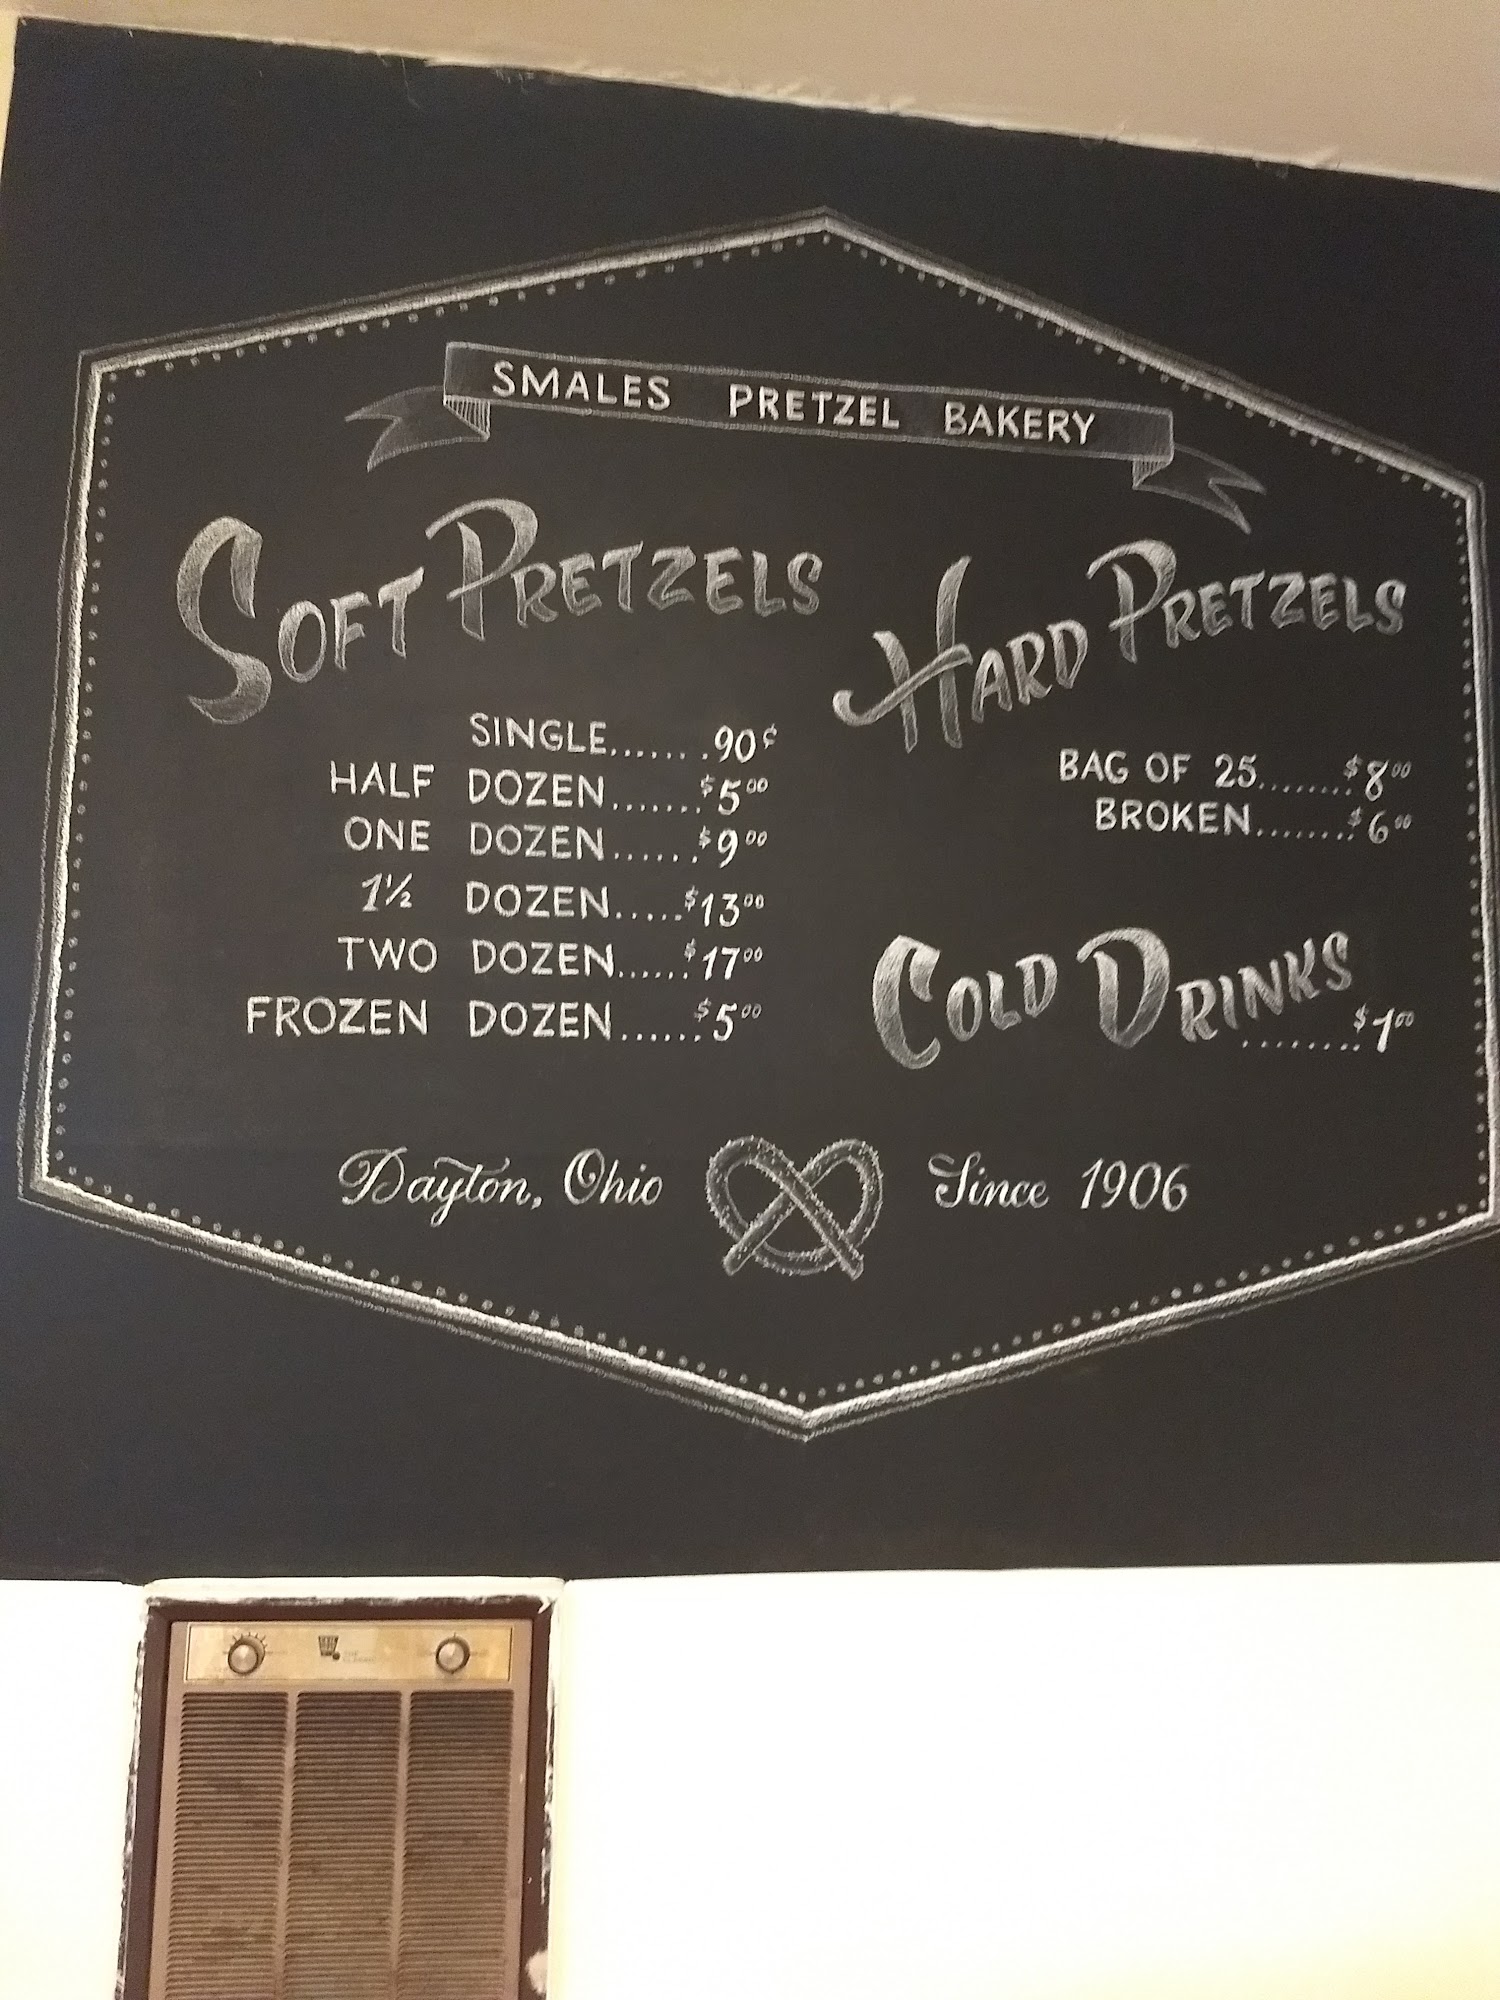 SMALES PRETZEL BAKERY
SOFT PRETZELS
SINGLE.......90¢
HALF DOZEN.......$5.00
ONE DOZEN......$9.00
1½ DOZEN.....$13.00
TWO DOZEN......$17.00
FROZEN DOZEN......$5.00
HARD PRETZELS
BAG OF 25........$8.00
BROKEN........$6.00
COLD DRINKS
........$1.00
Dayton, Ohio
Since 1906